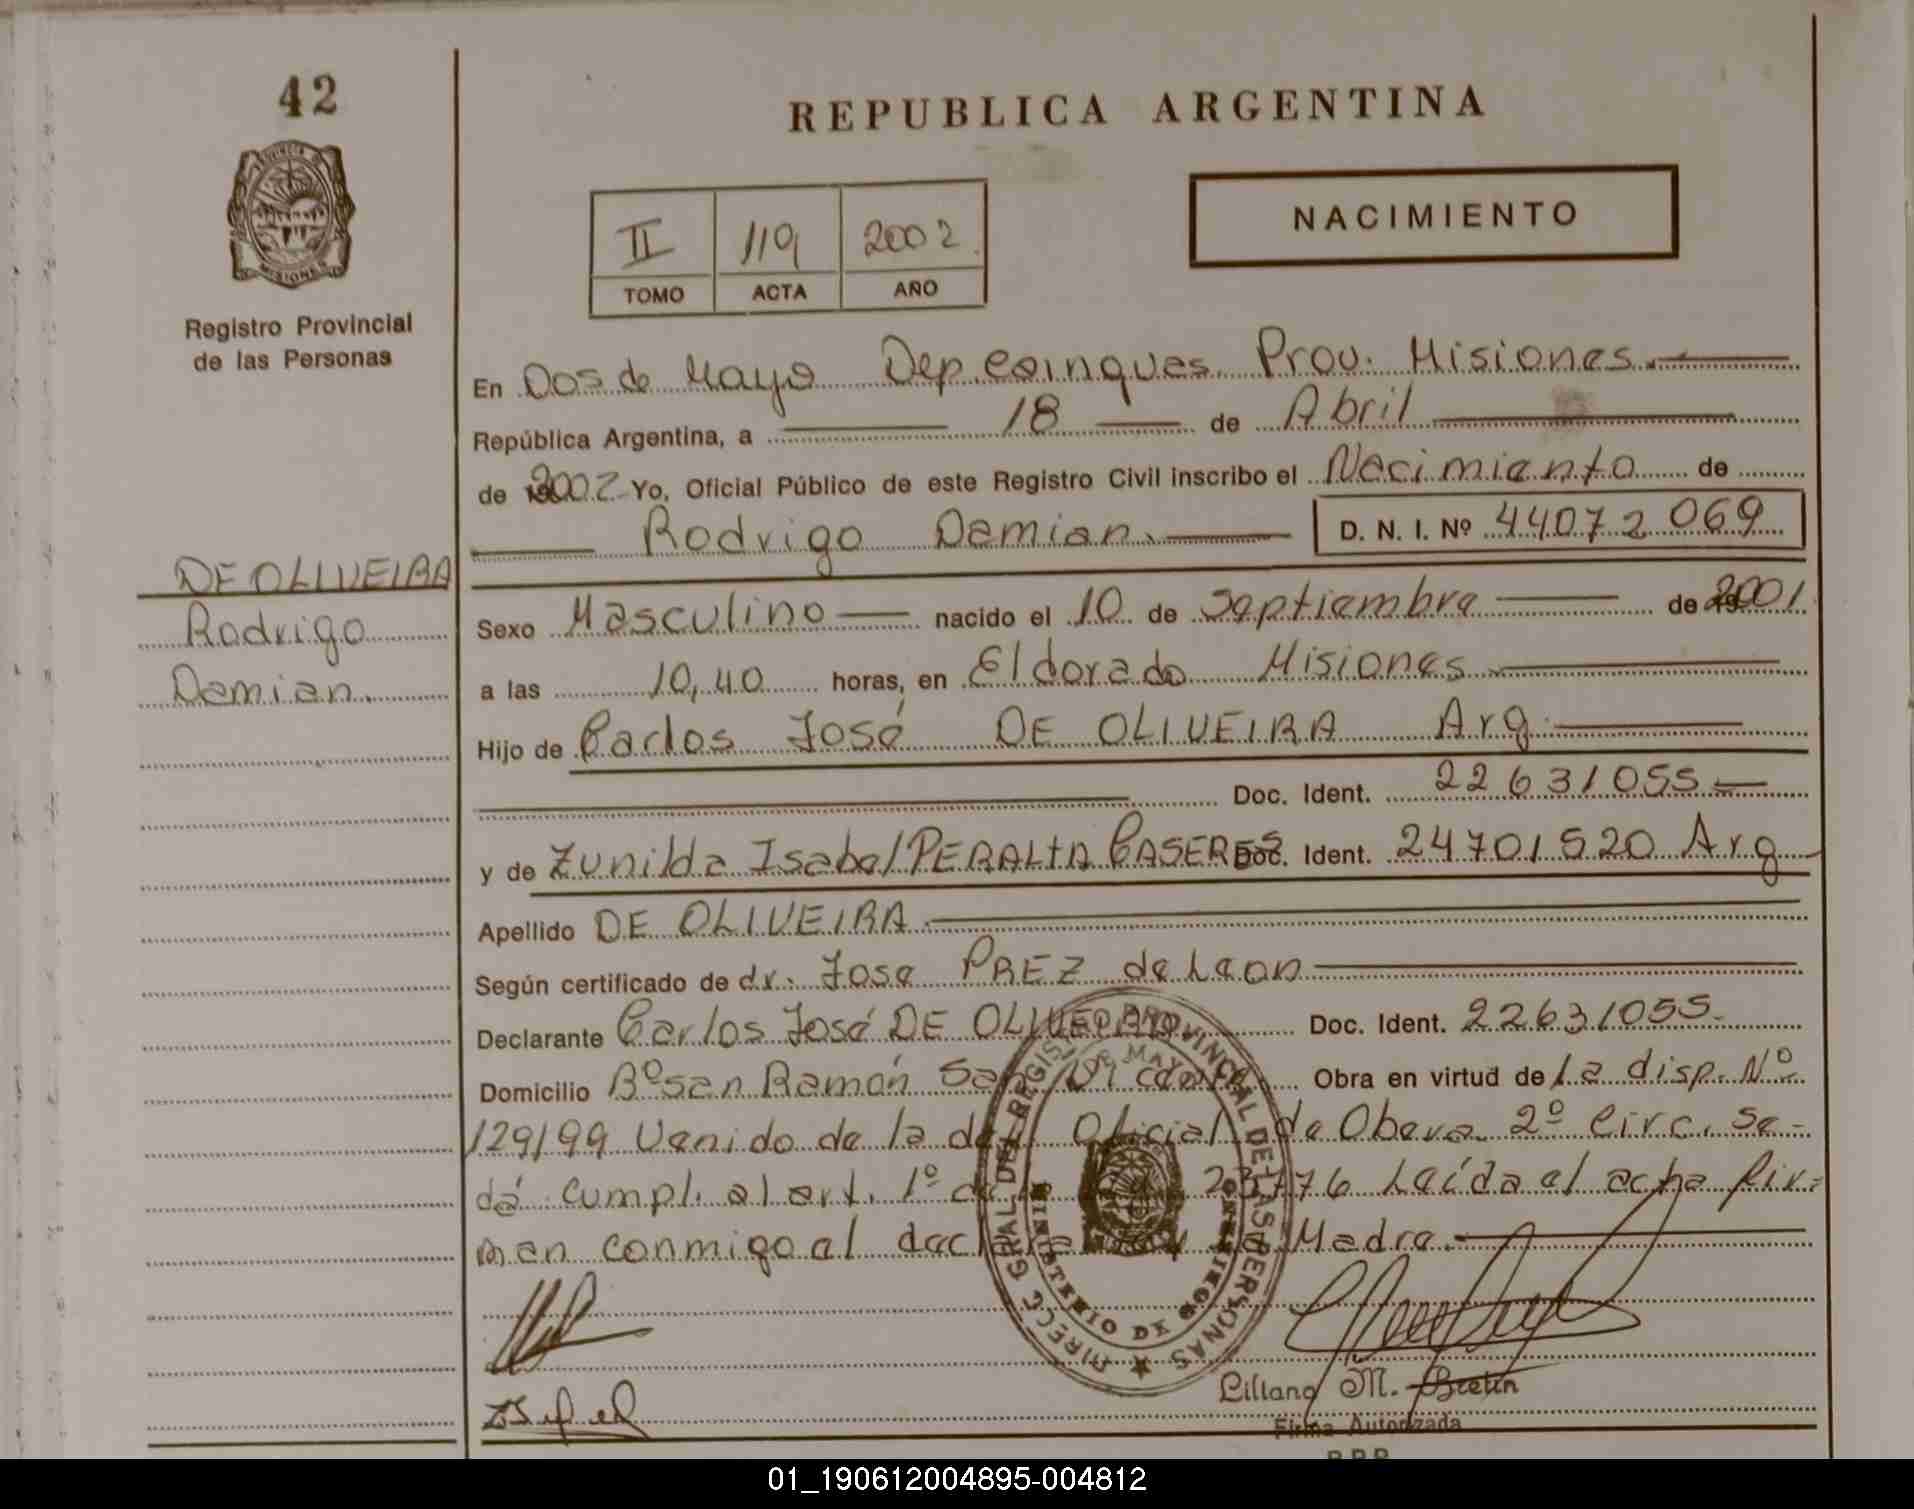 42
REPUBLICA ARGENTINA
PROVINCIA DE
MISIONES
Registro Provincial
de las Personas
II 119 2002
TOMO ACTA AÑO
NACIMIENTO
En Dos de Mayo Dep. Cainguas. Prov. Misiones.
República Argentina, a 18 de Abril
de 2002 Yo, Oficial Público de este Registro Civil inscribo el Nacimiento de
Rodrigo Damian. D. N. I. Nº 44072069
DE OLIVEIRA
Rodrigo
Damian.
Sexo Masculino nacido el 10 de Septiembre de 2001
a las 10,40 horas, en Eldorado Misiones.
Hijo de Carlos José DE OLIVEIRA Arg.
Doc. Ident. 22631055
y de Zunilda Isabel PERALTA CASERES Doc. Ident. 24701520 Arg
Apellido DE OLIVEIRA.
Según certificado de dr. Jose PREZ de Leon
Declarante Carlos José DE OLIVEIRA Doc. Ident. 22631055.
Domicilio Bº San Ramón San Vicente Obra en virtud de la disp. Nº
129/99 Venido de la Oficial de Obera 2º Circ. Se-
dá cumpl. al art. 1º de la 23776 Leída el acta fir=
man conmigo el Madre.
DIRECC. GRAL. DEL REGISTRO PROVINCIAL DE LAS PERSONAS
DOS DE MAYO
MINISTERIO DE GOBIERNO
Liliana M. Bretin
Firma Autorizada
R.P.P.
01_190612004895-004812